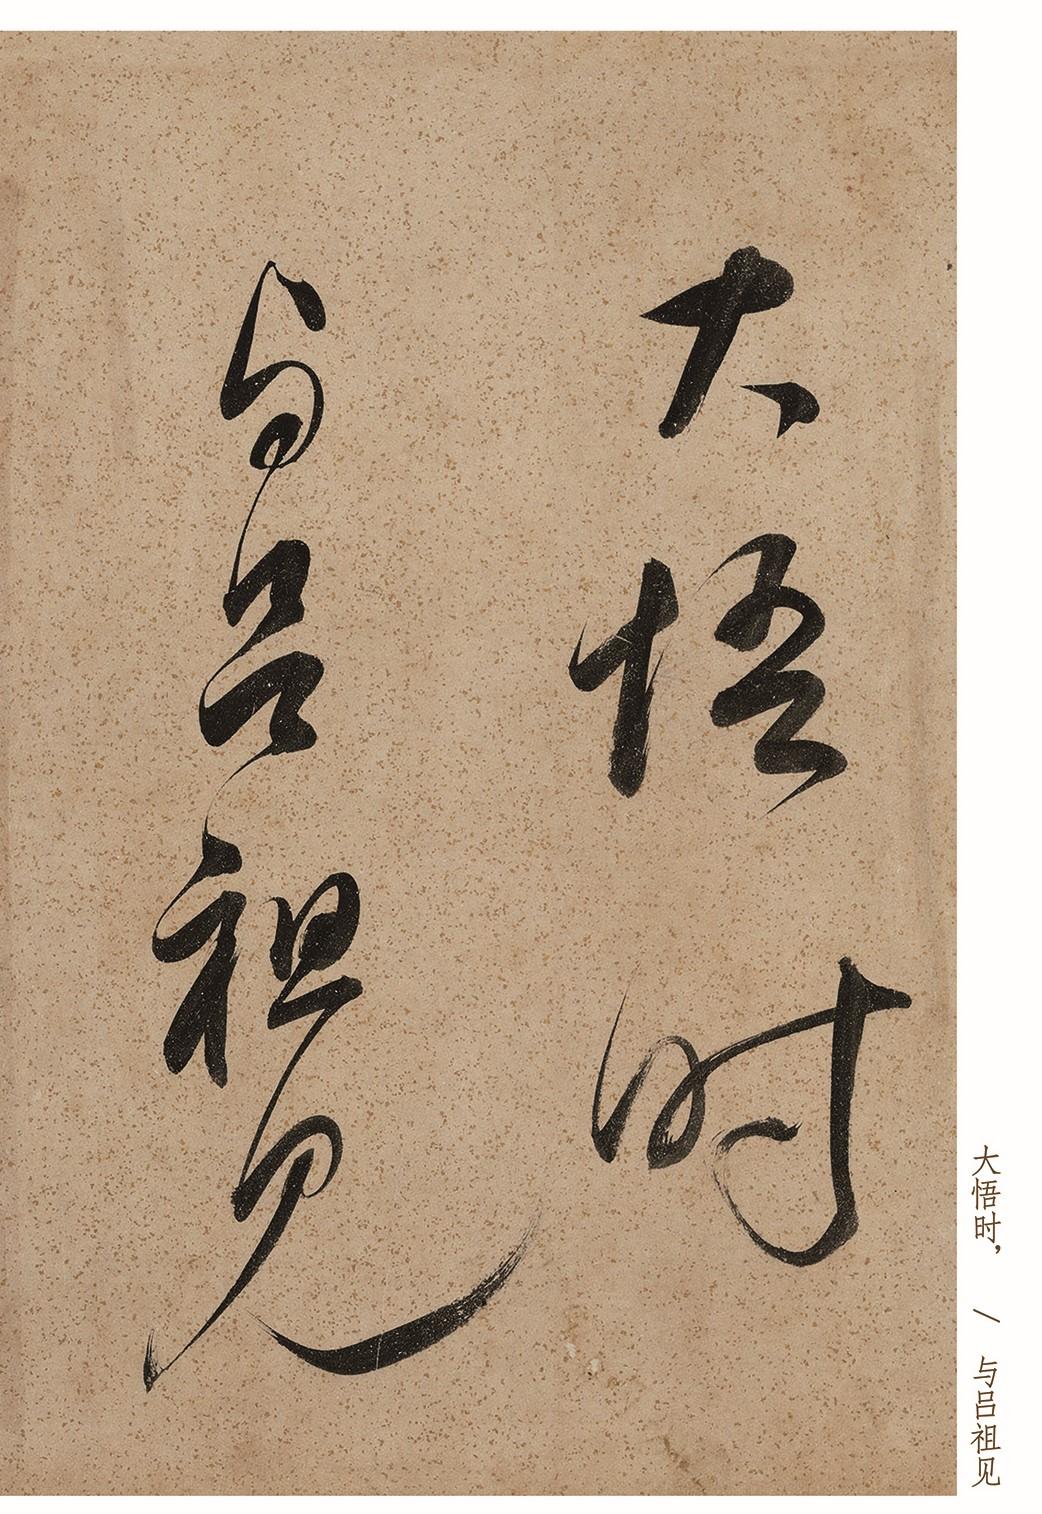 大悟时
与吕祖见
大悟时，／与吕祖见